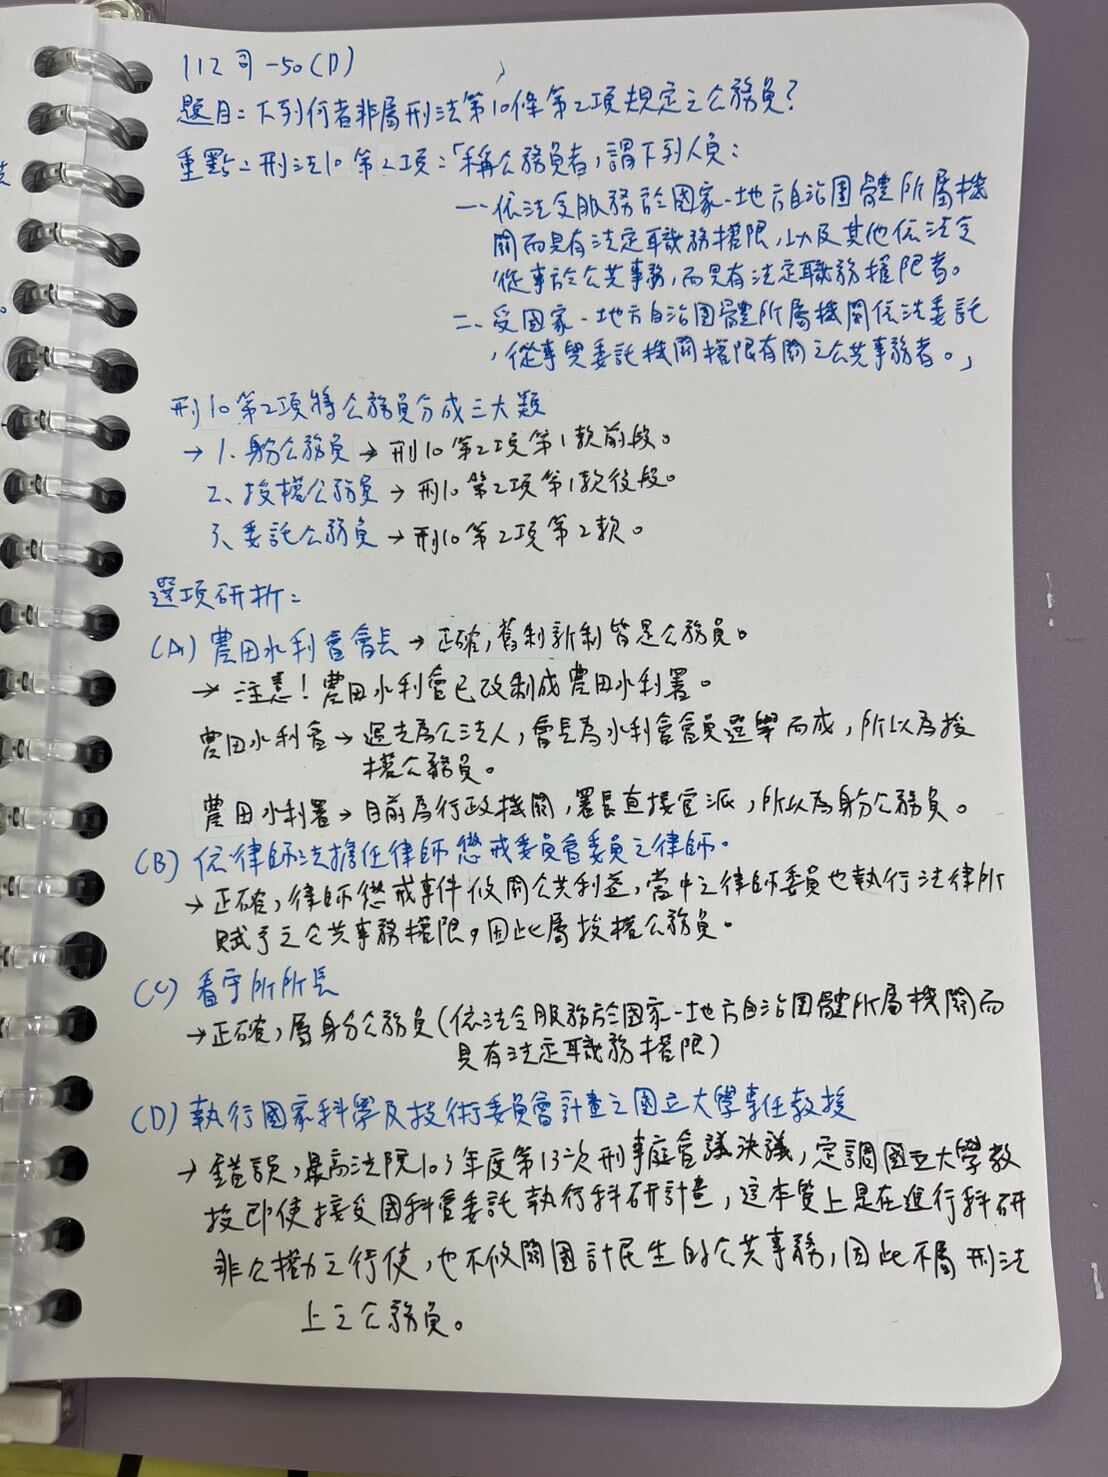 112司-50(D)
題目:下列何者非屬刑法第10條第2項規定之公務員?
重點:刑法10第2項:「稱公務員者,謂下列人員:
一、依法令服務於國家、地方自治團體所屬機
關而具有法定職務權限,以及其他依法令
從事於公共事務,而具有法定職務權限者。
二、受國家、地方自治團體所屬機關依法委託
,從事與委託機關權限有關之公共事務者。」
刑10第2項將公務員分成三大類
→ 1、身分公務員 → 刑10第2項第1款前段。
2、授權公務員 → 刑10第2項第1款後段。
3、委託公務員 → 刑10第2項第2款。
選項研析:
(A) 農田水利會會長 → 正確,舊制新制皆是公務員。
→ 注意!農田水利會已改制成農田水利署。
農田水利會 → 過去為公法人,會長為水利會會員選舉而成,所以為授
權公務員。
農田水利署 → 目前為行政機關,署長直接官派,所以為身分公務員。
(B) 依律師法擔任律師懲戒委員會委員之律師。
→ 正確,律師懲戒事件攸關公共利益,當中之律師委員也執行法律所
賦予之公共事務權限,因此屬授權公務員。
(C) 看守所所長
→ 正確,屬身分公務員(依法令服務於國家、地方自治團體所屬機關而
具有法定職務權限)
(D) 執行國家科學及技術委員會計畫之國立大學專任教授
→ 錯誤,最高法院103年度第13次刑事庭會議決議,定調國立大學教
授即使接受國科會委託執行科研計畫,這本質上是在進行科研
非公權力之行使,也不攸關國計民生的公共事務,因此不屬刑法
上之公務員。